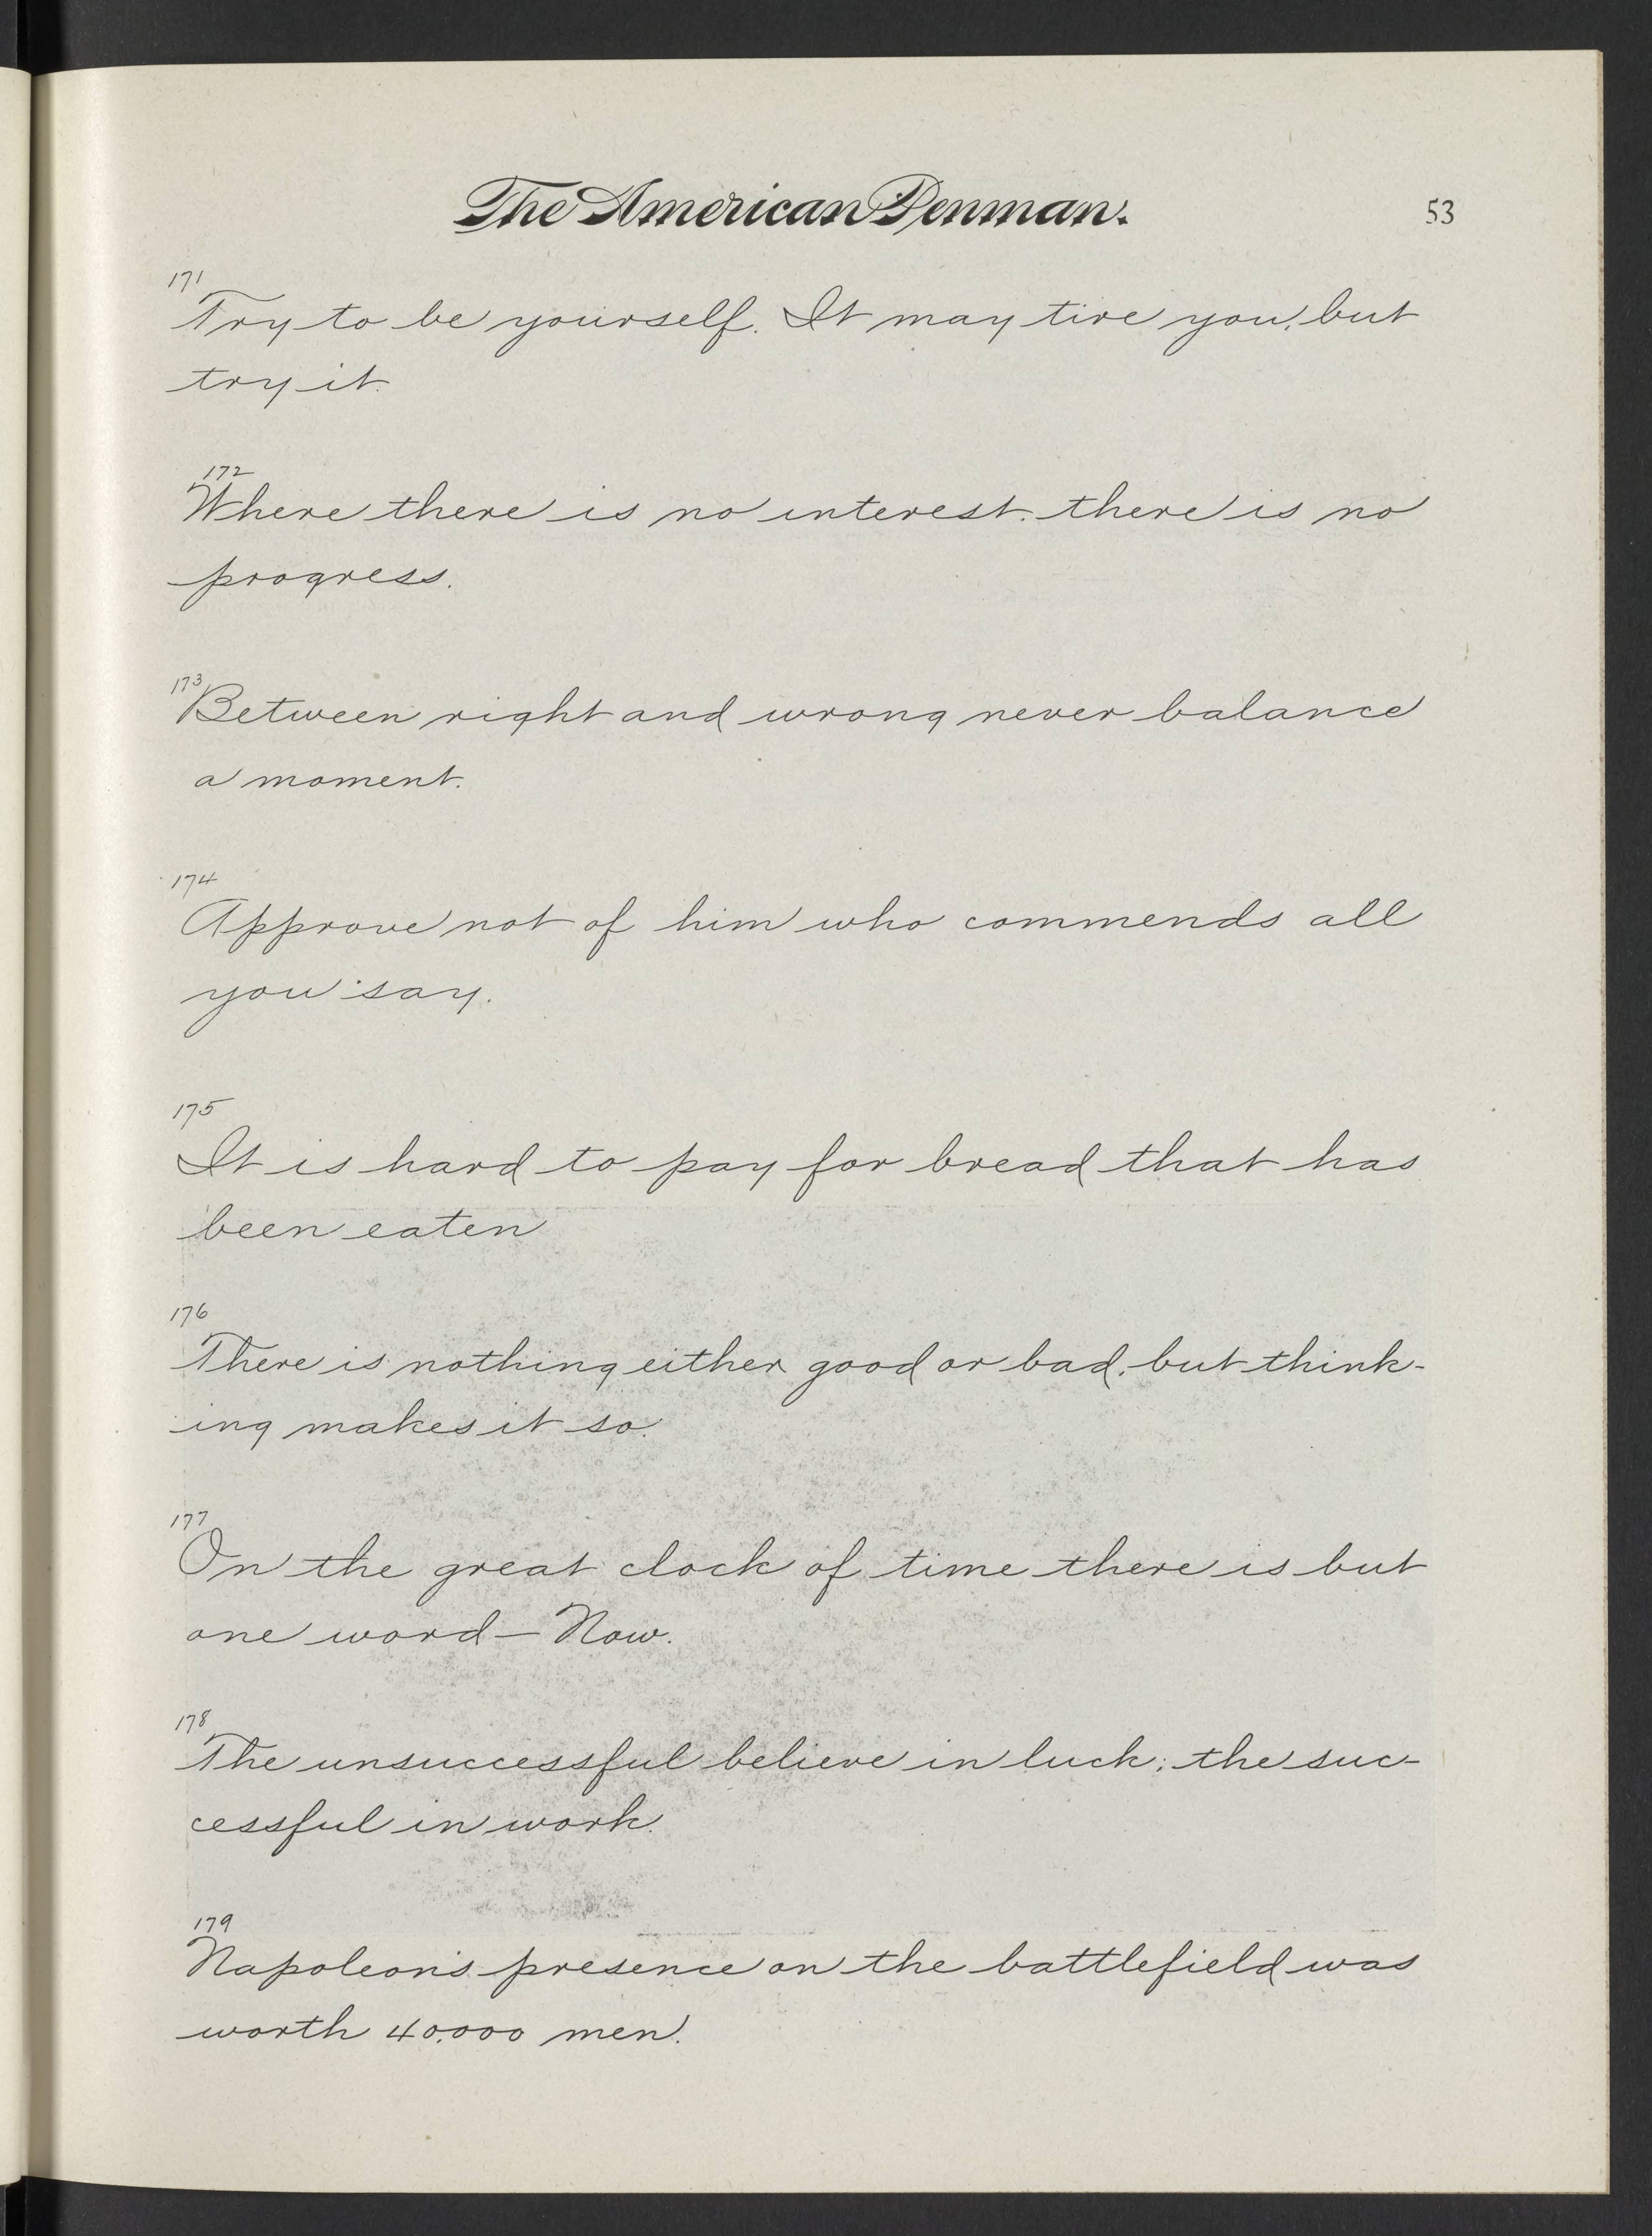 The American Penman.
53
171
Try to be yourself. It may tire you, but
try it.
172
Where there is no interest, there is no
progress.
173
Between right and wrong never balance
a moment.
174
Approve not of him who commends all
you say.
175
It is hard to pay for bread that has
been eaten
176
There is nothing either good or bad, but think-
ing makes it so.
177
On the great clock of time there is but
one word — Now.
178
The unsuccessful believe in luck; the suc-
cessful in work.
179
Napoleon's presence on the battlefield was
worth 40,000 men.